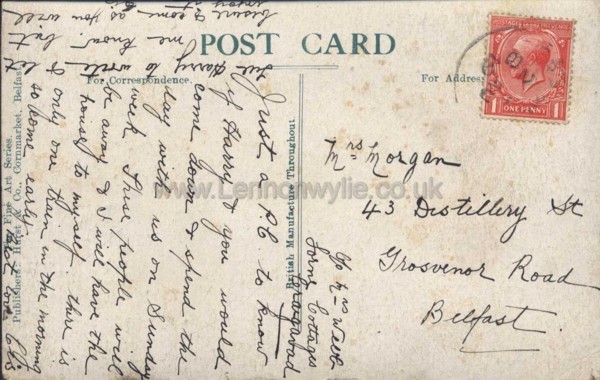 POST CARD
For Correspondence.
For Address
Fine Art Series.
Publishers: Hurst & Co., Cornmarket, Belfast
British Manufacture Throughout
POSTAGE REVENUE
1 1
ONE PENNY
www.Lennonwylie.co.uk
Mrs Morgan
43 Distillery St
Grosvenor Road
Belfast
c/o Mrs
Cottages
Craigavad
Just a P.C to know
if Harry & you would
come down & spend the
day with us on Sunday
week. These people will
be away & I will have the
house to myself. there is
only one train in the morning
so come early
best love
Tell Harry to write & let
me know. but
be sure & come as you will
enjoy it